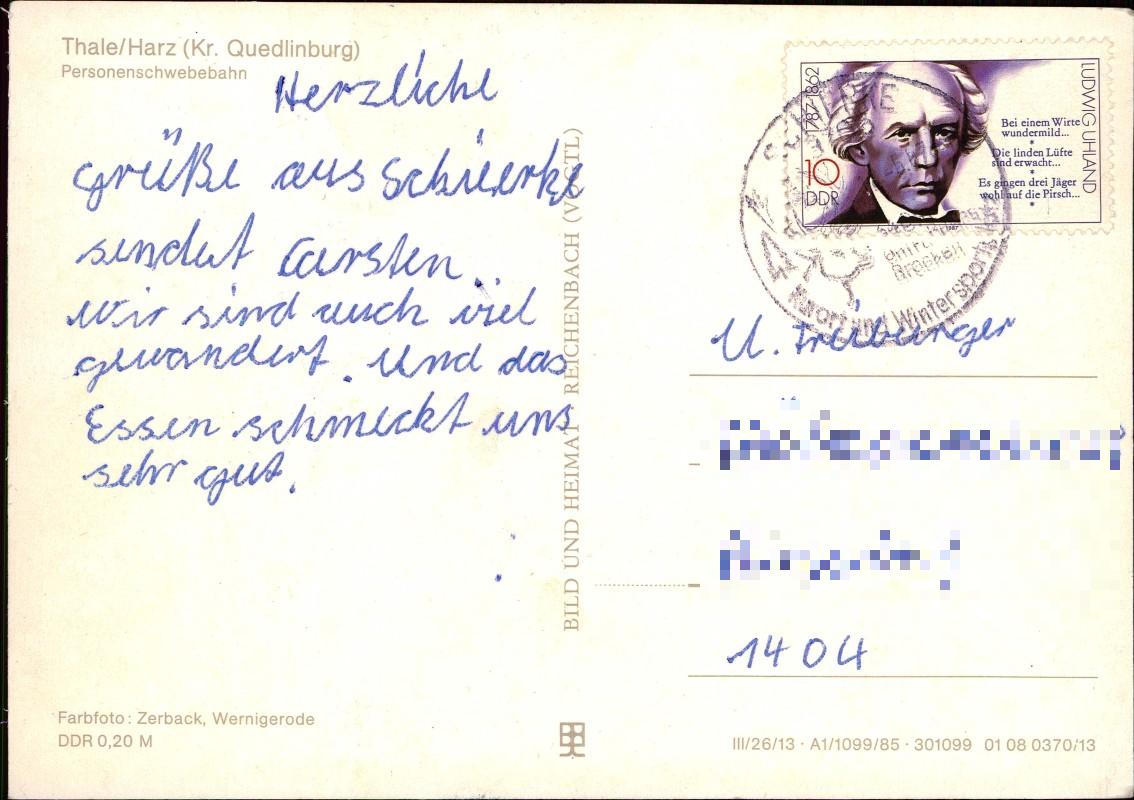 Thale/Harz (Kr. Quedlinburg)
Personenschwebebahn
Herzliche
Grüße aus Schierke
sendet Carsten.
Wir sind auch viel
gewandert. Und das
Essen schmeckt uns
sehr gut.
Farbfoto: Zerback, Wernigerode
DDR 0,20 M
BILD UND HEIMAT REICHENBACH (VOGTL)
1787-1862
LUDWIG UHLAND
Bei einem Wirte
wundermild...
Die linden Lüfte
sind erwacht...
Es gingen drei Jäger
wohl auf die Pirsch...
10
DDR
SCHIERKE
Kurort und Wintersport
Brocken
U. Freiburger
1404
III/26/13 · A1/1099/85 · 301099 01 08 0370/13